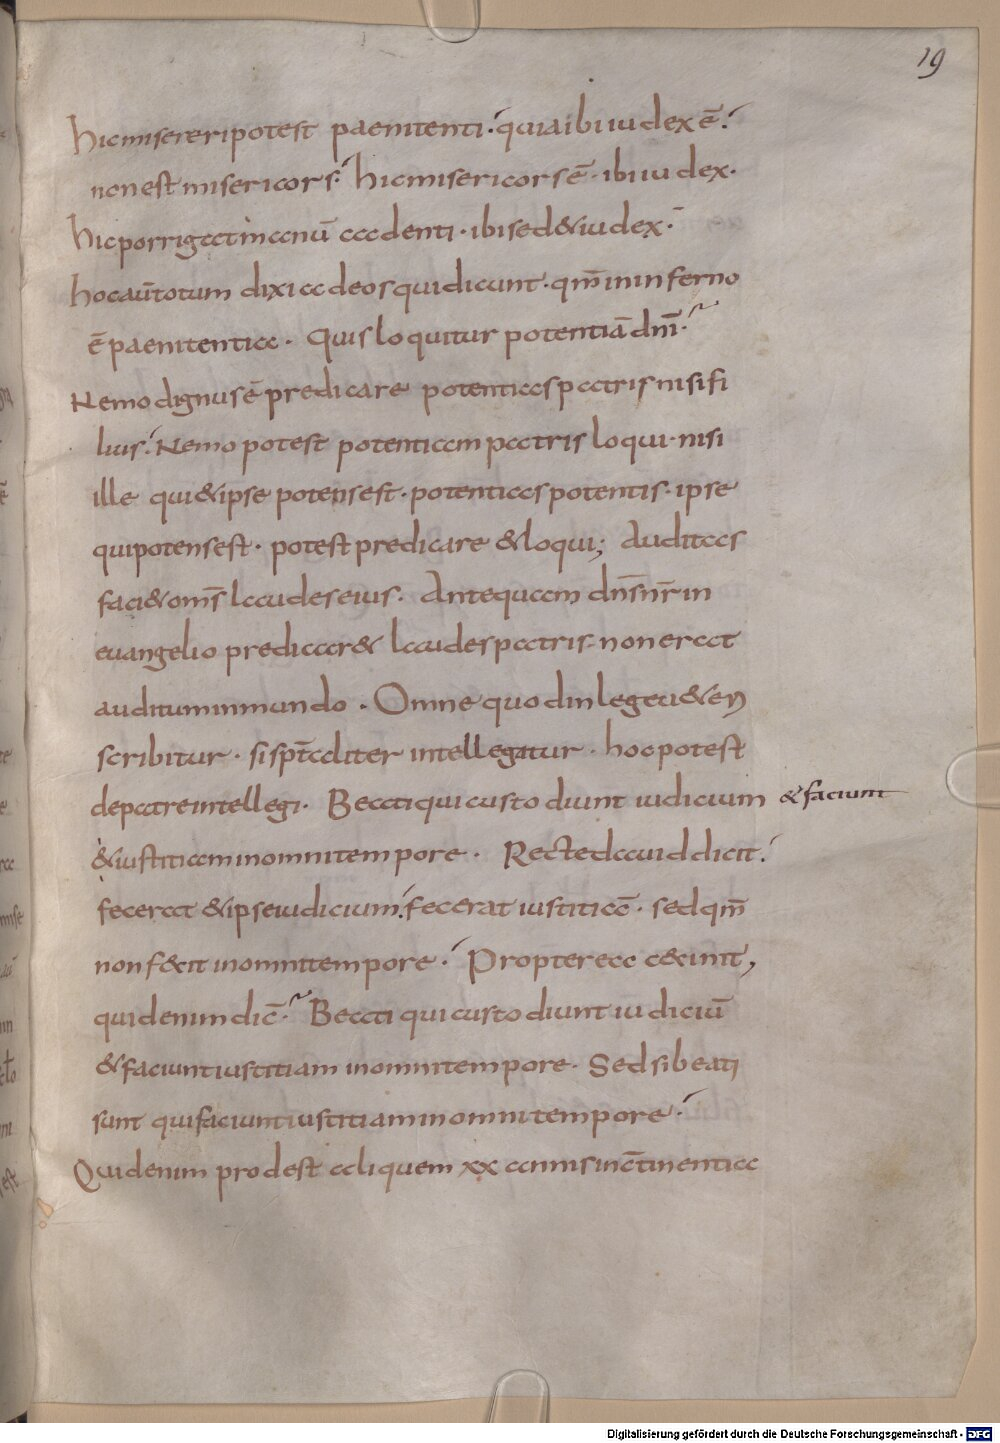 19
hic misereri potest paenitenti· quia ibi iudex ē·
non est misericors· hic misericors ē· ibi iudex·
hic porrigat manū cadenti· ibi sed & iudex·
hoc aūt totum dixi adeos qui dicunt· qm̄ in inferno
ē paenitentia· Quis loquitur potentiā dnī·
Nemo dignus ē predicare potentias patris nisi fi
lius· Nemo potest potentiam patris loqui· nisi
ille qui & ipse potens est· potentias potentis· ipse
qui potens est· potest predicare & loqui; Auditas
faci& om̄s laudes eius· Antequam dn̄s nr̄ in
euangelio predicar& laudes patris· non erat
auditum in mundo· Omne quod in lege u&eri
scribitur· si sp̄taliter intellegatur· hoc potest
de patre intellegi· Beati qui custodiunt iudicium & faciunt
& iustitiam in omni tempore· Recte dauid dicit·
fecerat & ipse iudicium· fecerat iustitiā· sed qm̄
non fecit in omni tempore· Propterea
quid enim dic̄· Beati qui custodiunt iudiciū
& faciunt iustitiam in omni tempore· Sed si beati
sunt qui faciunt iustitiam in omni tempore·
Quid enim prodest aliquem xx annis in c̄tinentia
Digitalisierung gefördert durch die Deutsche Forschungsgemeinschaft - DFG